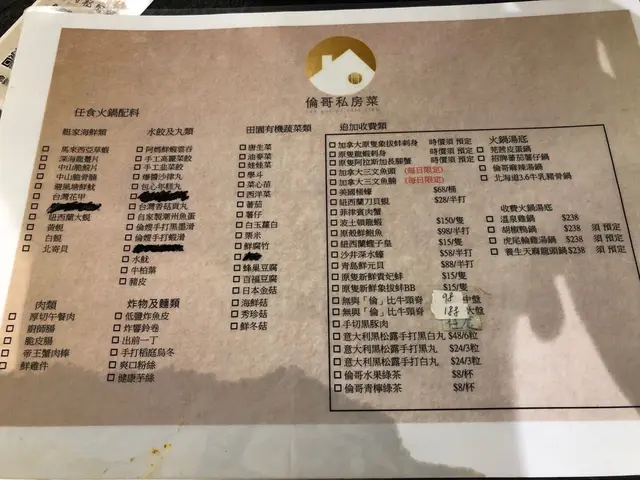 倫哥私房菜
任食火鍋配料
艇家海鮮類
馬來西亞草蝦
深海龍躉片
中山脆鯇片
中山脆脊腩
避風塘鮮魷
台灣花甲
紐西蘭大蜆
黃蜆
白蜆
北寄貝
水餃及丸類
阿媽鮮蝦雲吞
手工高麗菜餃
手工韭菜餃
爆醬沙律丸
包心年糕丸
台灣香菇貢丸
自家製潮州魚蛋
倫嫂手打黑墨滑
倫嫂手打蝦滑
水魷
牛柏葉
豬皮
田園有機蔬菜類
唐生菜
油麥菜
娃娃菜
學斗
菜心苗
西洋菜
蕃茄
薯仔
白玉蘿白
粟米
鮮腐竹
蜂巢豆腐
百福豆腐
日本金菇
海鮮菇
秀珍菇
鮮冬菇
肉類
厚切午餐肉
廚師腸
脆皮腸
帝王蟹肉棒
鮮雞件
炸物及麵類
低鹽炸魚皮
炸響鈴卷
出前一丁
手打稻庭烏冬
爽口粉絲
健康芋絲
追加收費類
加拿大原隻象拔蚌刺身 時價須 預定
原隻龍蝦刺身 時價須 預定
原隻阿拉斯加長腳蟹 時價須 預定
加拿大三文魚蛋 (每日限定)
加拿大三文魚腩 (每日限定)
美國極蠔 $68/桶
紐西蘭刀貝蜆 $28/半打
菲律賓肉蟹
波士頓龍蝦 $150/隻
原殼鮮鮑魚 $98/半打
紐西蘭蠔子皇 $15/隻
沙井深水蠔 $58/半打
青島鮮元貝 $88/半打
原隻新鮮貴妃蚌 $15/隻
原隻新鮮象拔蚌BB $15/隻
無與「倫」比牛頸脊 98 中盤
無與「倫」比牛頸脊 188 大盤
手切黑豚肉
意大利黑松露手打黑白丸 $48/6粒
意大利黑松露手打黑丸 $24/3粒
意大利黑松露手打白丸 $24/3粒
倫哥水果綠茶 $8/杯
倫哥青檸綠茶 $8/杯
火鍋湯底
芫荽皮蛋鍋
招牌蕃茄薯仔鍋
倫哥麻辣湯鍋
北海道3.6牛乳豬骨鍋
收費火鍋湯底
溫泉雞鍋 $238
胡椒鴨鍋 $238 須 預定
虎尾輪雞湯鍋 $238 須 預定
養生天麻龍頭鍋 $238 須 預定